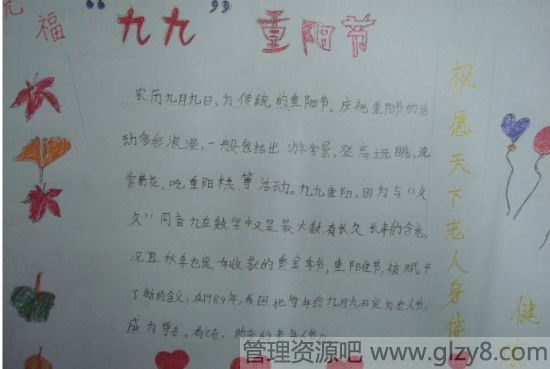 元
福
“九九”重阳节
农历九月九日,为传统的重阳节。庆祝重阳节的活
动多彩浪漫,一般包括出游赏景,登高远眺,观
赏菊花、吃重阳糕、等活动。九九重阳,因为与“久
久”同音九在数字中又是最大数,有长久长寿的含意,
况且秋季也是一年收获的黄金季节,重阳佳节,被赋予
了新的含义,在1989年,我国把每年的九月九日定为老人节,
成为尊老、敬老、助老的老年人节。
祝愿天下老人身体
健
管理资源吧 www.glzy8.com